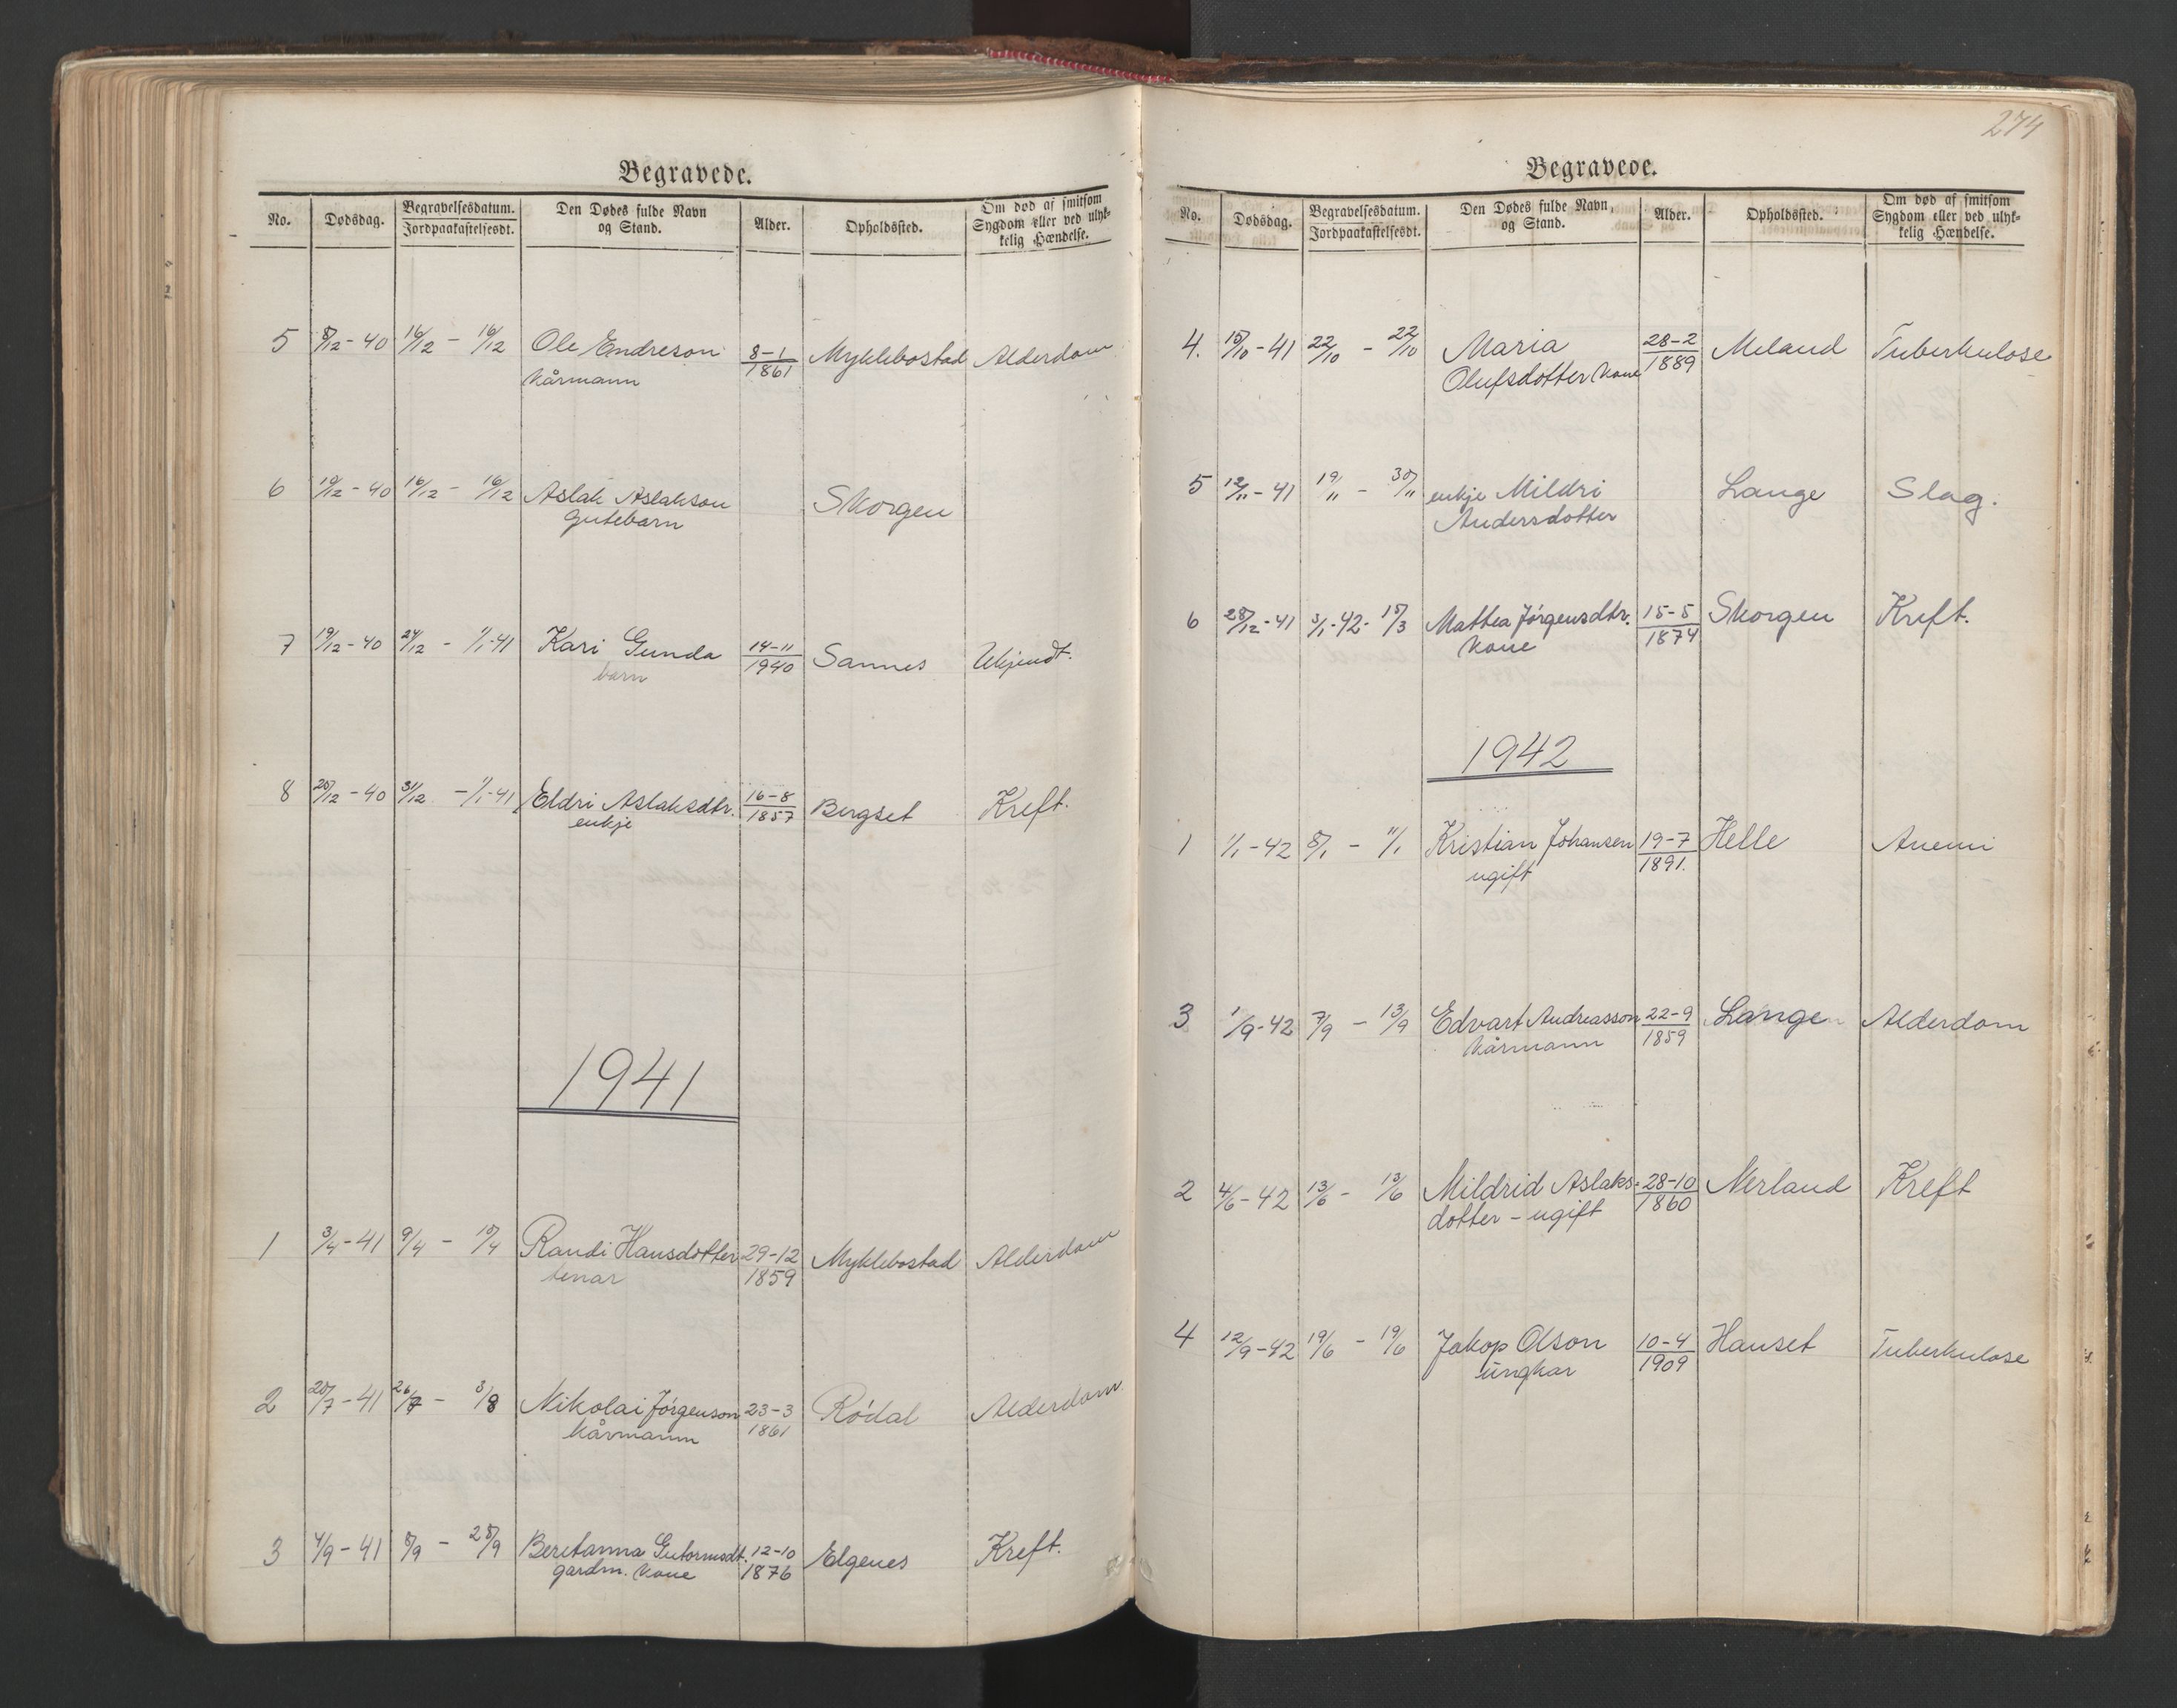 Begravede.
No. Dødsdag. Begravelsesdatum. Jordpaakastelsesdt. Den Dødes fulde Navn og Stand. Alder. Opholdssted. Om død af smitsom Sygdom eller ved ulykkelig Hændelse.
5 8/12-40 16/12 - 16/12 Ole Endreson 8-1 1861 Myklebostad Alderdom
kårmann
6 10/12-40 16/12 - 16/12 Aslak Aslakson Skorgen
gutebarn
7 19/12-40 24/12 - 1/1-41 Kari Gunda 14-11 1940 Sannes Ukjendt.
barn
8 20/12-40 31/12 - 1/1-41 Eldri Aslaksdtr. 16-8 1857 Bergset Kreft.
enkje
1941
1 3/4-41 9/4 - 10/4 Randi Hansdotter 29-12 1859 Myklebostad Alderdom
tenar
2 20/7-41 26/7 - 3/8 Nikolai Jørgenson 23-3 1861 Rødal Alderdom
kårmann
3 4/9-41 8/9 - 28/9 Beretanna Gutormsdt. 12-10 1876 Elgenes Kreft.
gardm. kone
274
Begravede.
No. Dødsdag. Begravelsesdatum. Jordpaakastelsesdt. Den Dødes fulde Navn, og Stand. Alder. Opholdssted. Om død af smitsom Sygdom eller ved ulykkelig Hændelse.
4. 15/10-41 22/10 - 22/10 Maria 28-2 1889 Meland Tuberkulose
Olufsdotter kone
5 12/11-41 19/11 - 30/11 enkje Mildri Lange Slag.
Andersdotter
6 28/12-41 3/1-42- 15/3 Mattea Jørgensdtr. 15-5 1874 Skorgen Kreft.
kone
1942
1 1/1-42 8/1 - 11/1 Kristian Johansen 19-7 1891. Helle Anemi
ugift
3 1/9-42 7/9 - 13/9 Edvart Andreasson 22-9 1859 Lange Alderdom
kårmann
2 4/6-42 13/6 - 13/6 Mildrid Aslaks- 28-10 1860 Nerland Kreft
dotter - ugift
4 12/9-42 19/6 - 19/6 Jakop Olson 10-4 1909 Hanset Tuberkulose
ungkar